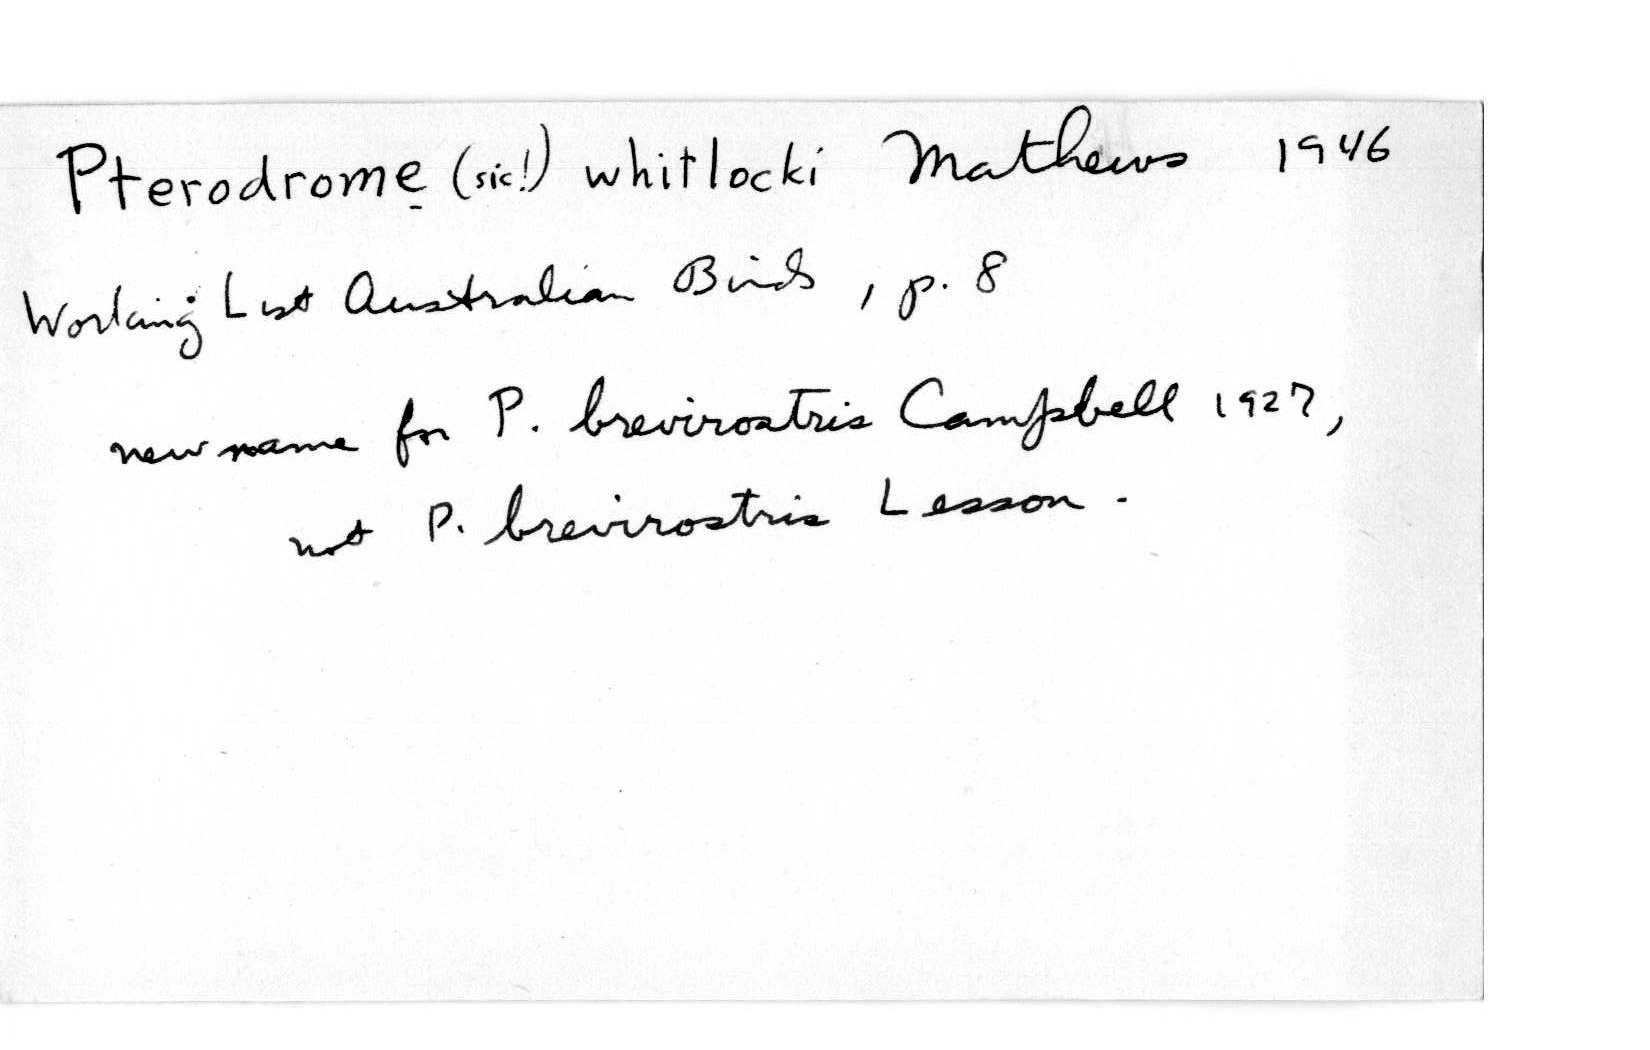 Pterodrome (sic!) whitlocki Mathews 1946
Working List Australian Birds, p. 8
new name for P. brevirostris Campbell 1927,
not P. brevirostris Lesson.